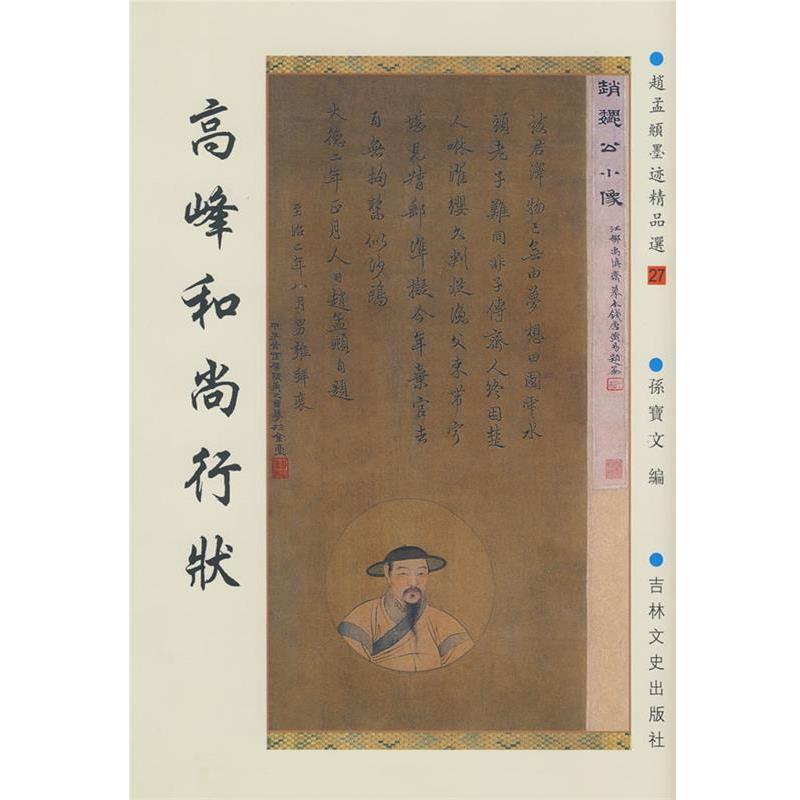 趙孟頫墨迹精品選
27
孫寶文 編
吉林文史出版社
高峰和尚行狀
趙魏公小像
致君澤物已無由夢想田園雲水
頭老子難同非子傳齊人終困楚
人咻濯纓久判從漁父束帶寧
堪見督郵準擬今年棄官去
自無拘繫似沙鷗
大德二年正月人日趙孟頫自題
至治二年八月男雍拜裝